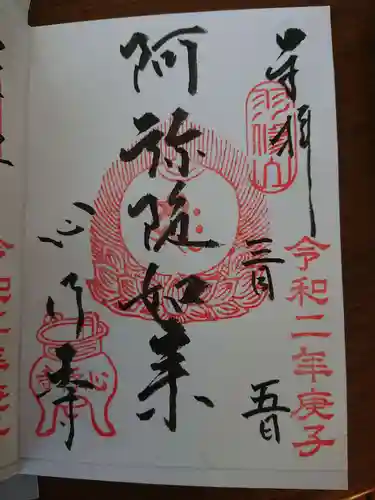 奉拝
令和二年庚子
三月
五日
阿弥陀如来